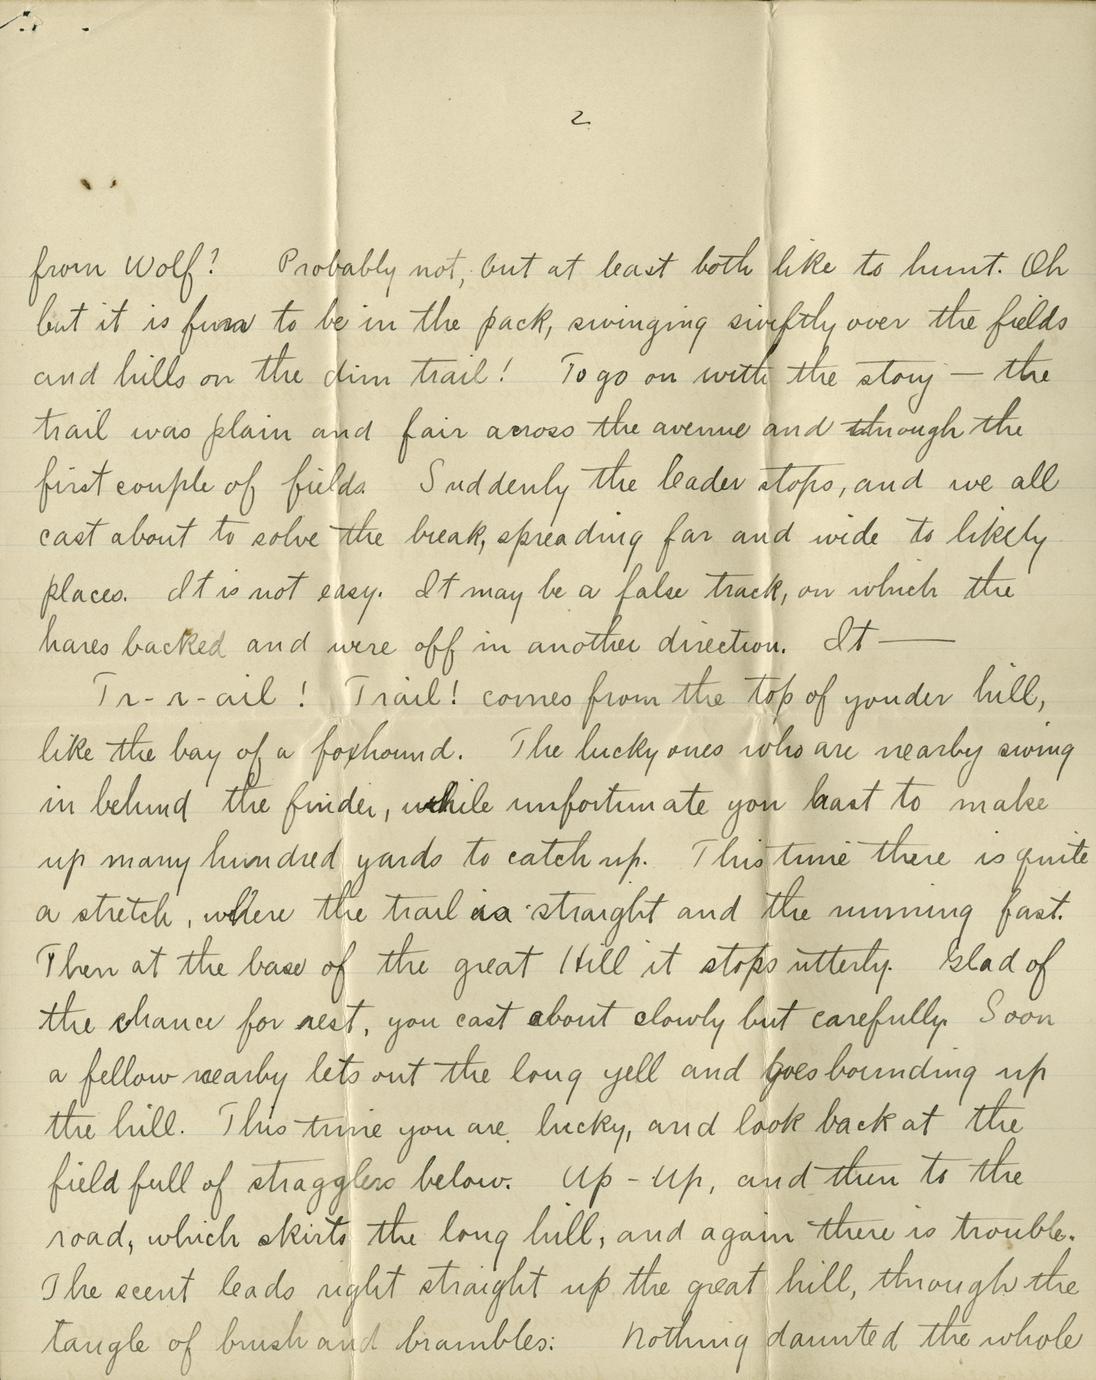 2
from Wolf? Probably not, but at least both like to hunt. Oh
but it is fun to be in the pack, swinging swiftly over the fields
and hills on the dim trail! To go on with the story — the
trail was plain and fair across the avenue and through the
first couple of fields. Suddenly the leader stops, and we all
cast about to solve the break, spreading far and wide to likely
places. It is not easy. It may be a false track, on which the
hares backed and were off in another direction. It —
Tr-r-ail! Trail! comes from the top of yonder hill,
like the bay of a foxhound. The lucky ones who are nearby swing
in behind the finder, while unfortunate you hast to make
up many hundred yards to catch up. This time there is quite
a stretch, where the trail is straight and the running fast.
Then at the base of the great Hill it stops utterly. Glad of
the chance for rest, you cast about slowly but carefully. Soon
a fellow nearby lets out the long yell and goes bounding up
the hill. This time you are lucky, and look back at the
field full of stragglers below. Up - Up, and then to the
road, which skirts the long hill, and again there is trouble.
The scent leads right straight up the great hill, through the
tangle of brush and brambles: Nothing daunted the whole